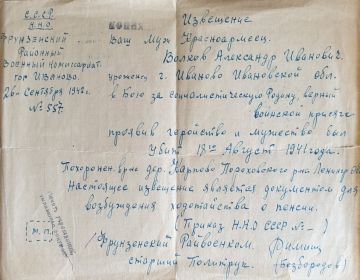 СССР
Н.К.О.
Фрунзенский
Районный
Военный Комиссариат
гор Иваново.
26 Сентября 194
№ 557.
Копия
Извещение
Ваш Муж Красноармеец.
Волков Александр Иванович.
уроженец г. Иваново Ивановской обл.
в бою за социалистическую Родину, верный
воинской присяге
проявив геройство и мужество был
Убит 18го Август 1941 года.
Похоронен дер. Карпово р-на
Настоящее извещение является документом для
возбуждения ходатайства о пенсии.
(Приказ Н.К.О СССР № -)
М.П.
Фрунзенский Райвоенком.
старший Политрук
(Безбородов)